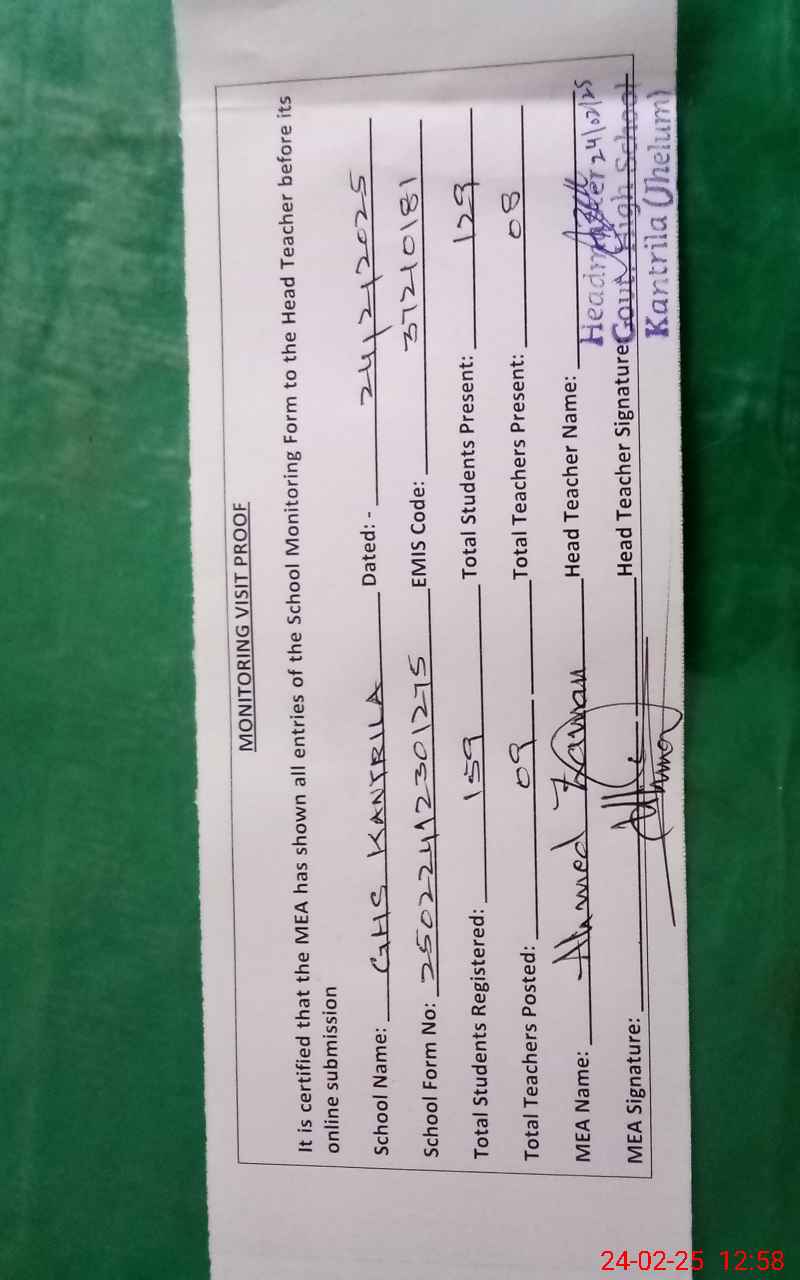 MONITORING VISIT PROOF
It is certified that the MEA has shown all entries of the School Monitoring Form to the Head Teacher before its
online submission
School Name: GHS KANTRILA Dated: - 24/2/2025
School Form No: 25022412301275 EMIS Code: 37210181
Total Students Registered: 159 Total Students Present: 129
Total Teachers Posted: 09 Total Teachers Present: 08
MEA Name: Ahmed Zaman Head Teacher Name:
Headmaster 24/02/25
MEA Signature: Head Teacher Signature
Govt. High School
Kantrila (Jhelum)
24-02-25 12:58